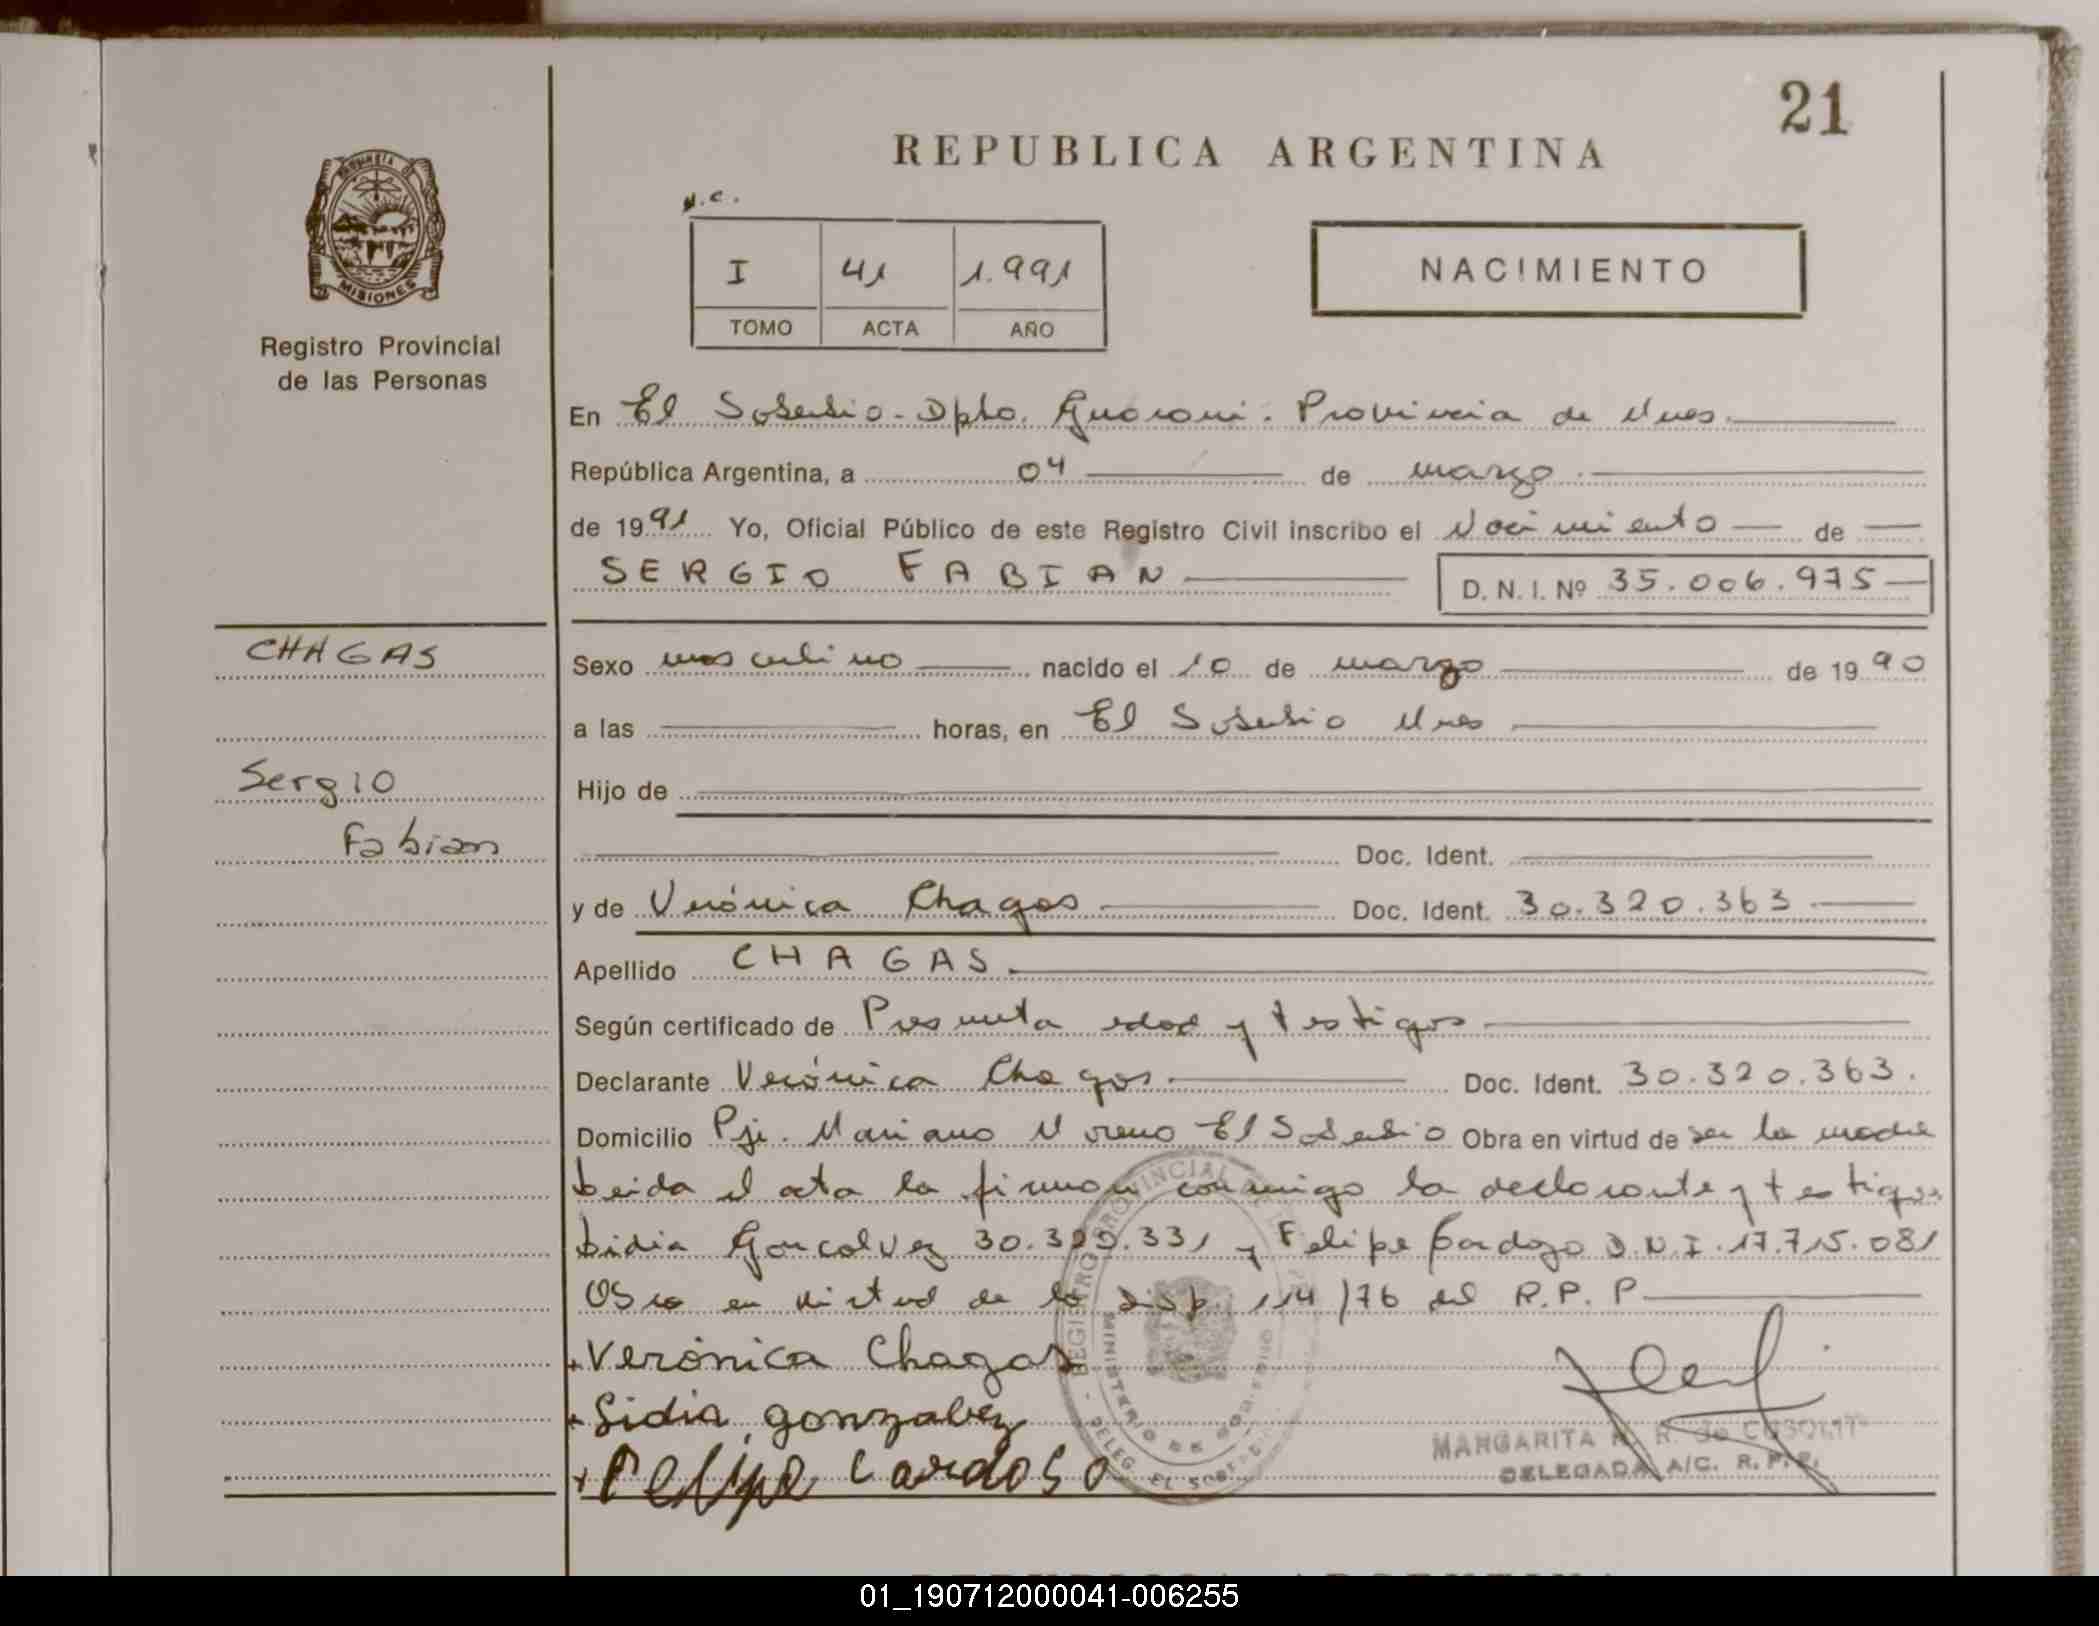 21
REPUBLICA ARGENTINA
N.C.
I 41 1.991
TOMO ACTA AÑO
NACIMIENTO
PROVINCIA
MISIONES
Registro Provincial
de las Personas
En El Soberbio - Dpto. Guarani. Provincia de Mnes.
República Argentina, a 04 de marzo
de 1991 Yo, Oficial Público de este Registro Civil inscribo el Nacimiento de
SERGIO FABIAN D. N. I. Nº 35.006.975
CHAGAS
Sergio
Fabian
Sexo masculino nacido el 10 de marzo de 1990
a las horas, en El Soberbio Mnes
Hijo de
Doc. Ident.
y de Verónica Chagas Doc. Ident. 30.320.363
Apellido CHAGAS.
Según certificado de Presunta edad y testigos
Declarante Verónica Chagas Doc. Ident. 30.320.363.
Domicilio Pje. Mariano Moreno El Soberbio Obra en virtud de ser la madre
Leida el acta la firman conmigo la declarante y testigos
Lidia Goncalvez y Felipe Cardozo D.N.I. 17.715.081
Obra en virtud de la Disp. 114/76 del R.P.P
Verónica Chagas
Lidia gonzalvez
Felipe Cardoso
REGISTRO PROVINCIAL
MINISTERIO DE GOBIERNO
DELEG. EL SOBERBIO
MARGARITA R. de
DELEGADA A/C. R.P.P.
REPUBLICA ARGENTINA
01_190712000041-006255